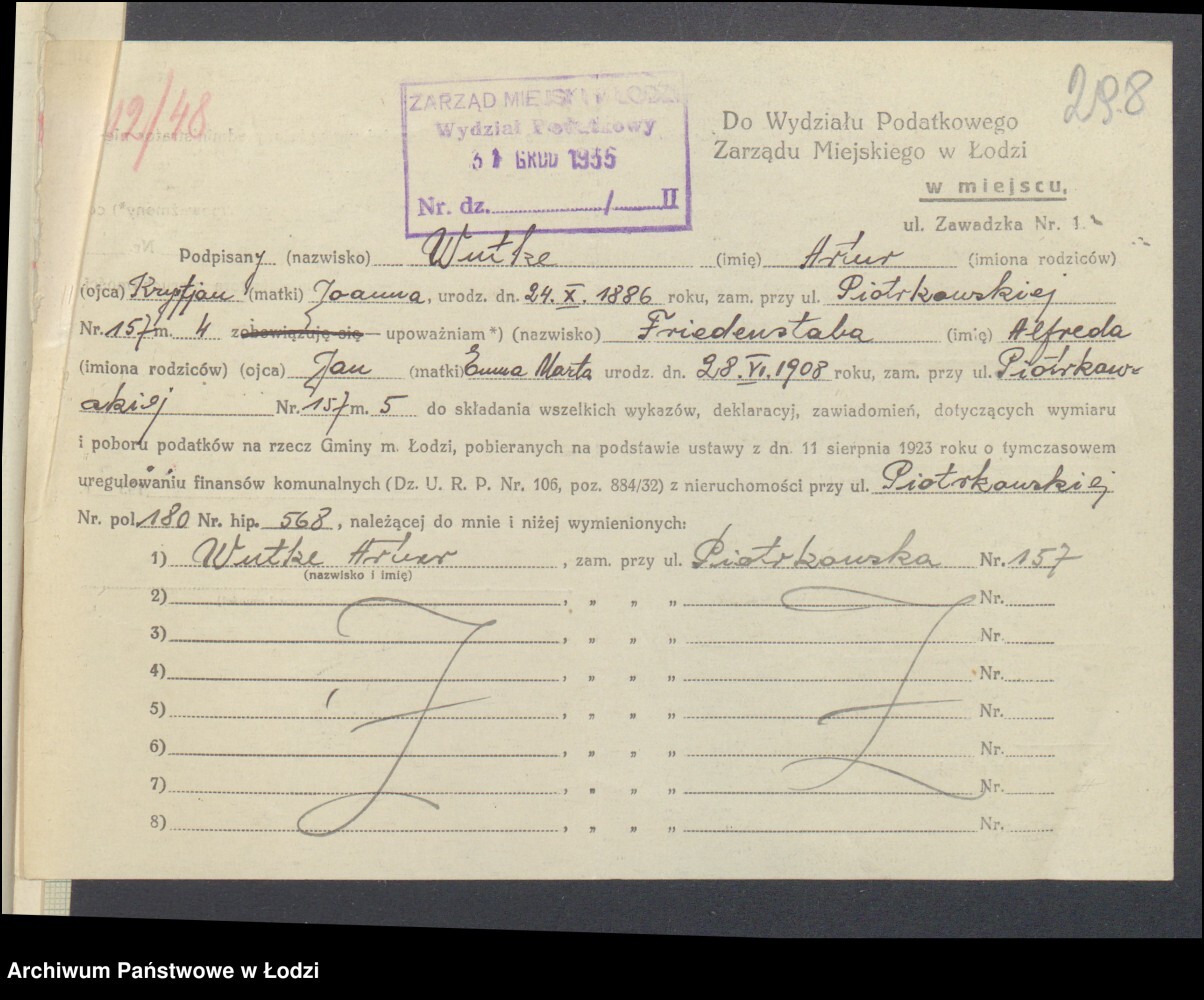 12/48
298
ZARZĄD MIEJSKI w ŁODZI
Wydział Podatkowy
31 GRUD 1935
Nr. dz. / II
Do Wydziału Podatkowego
Zarządu Miejskiego w Łodzi
w miejscu,
ul. Zawadzka Nr. 1.
Podpisany (nazwisko) Wutke (imię) Artur (imiona rodziców)
(ojca) Krystjan (matki) Joanna, urodz. dn. 24. X. 1886 roku, zam. przy ul. Piotrkowskiej
Nr. 157 m. 4 zobowiązuję się upoważniam *) (nazwisko) Friedenstaba (imię) Alfreda
(imiona rodziców) (ojca) Jan (matki) Emma Marta urodz. dn. 28. VI. 1908 roku, zam. przy ul. Piotrkow-
skiej Nr. 157 m. 5 do składania wszelkich wykazów, deklaracyj, zawiadomień, dotyczących wymiaru
i poboru podatków na rzecz Gminy m. Łodzi, pobieranych na podstawie ustawy z dn. 11 sierpnia 1923 roku o tymczasowem
uregulowaniu finansów komunalnych (Dz. U. R. P. Nr. 106, poz. 884/32) z nieruchomości przy ul. Piotrkowskiej
Nr. pol. 180 Nr. hip. 568, należącej do mnie i niżej wymienionych:
1) Wutke Artur, zam. przy ul. Piotrkowska Nr. 157
(nazwisko i imię)
2) , „ „ „ Nr.
3) , „ „ „ Nr.
4) , „ „ „ Nr.
5) , „ „ „ Nr.
6) , „ „ „ Nr.
7) , „ „ „ Nr.
8) , „ „ „ Nr.
Archiwum Państwowe w Łodzi